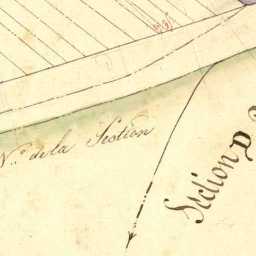 N.º de la Section
Section D